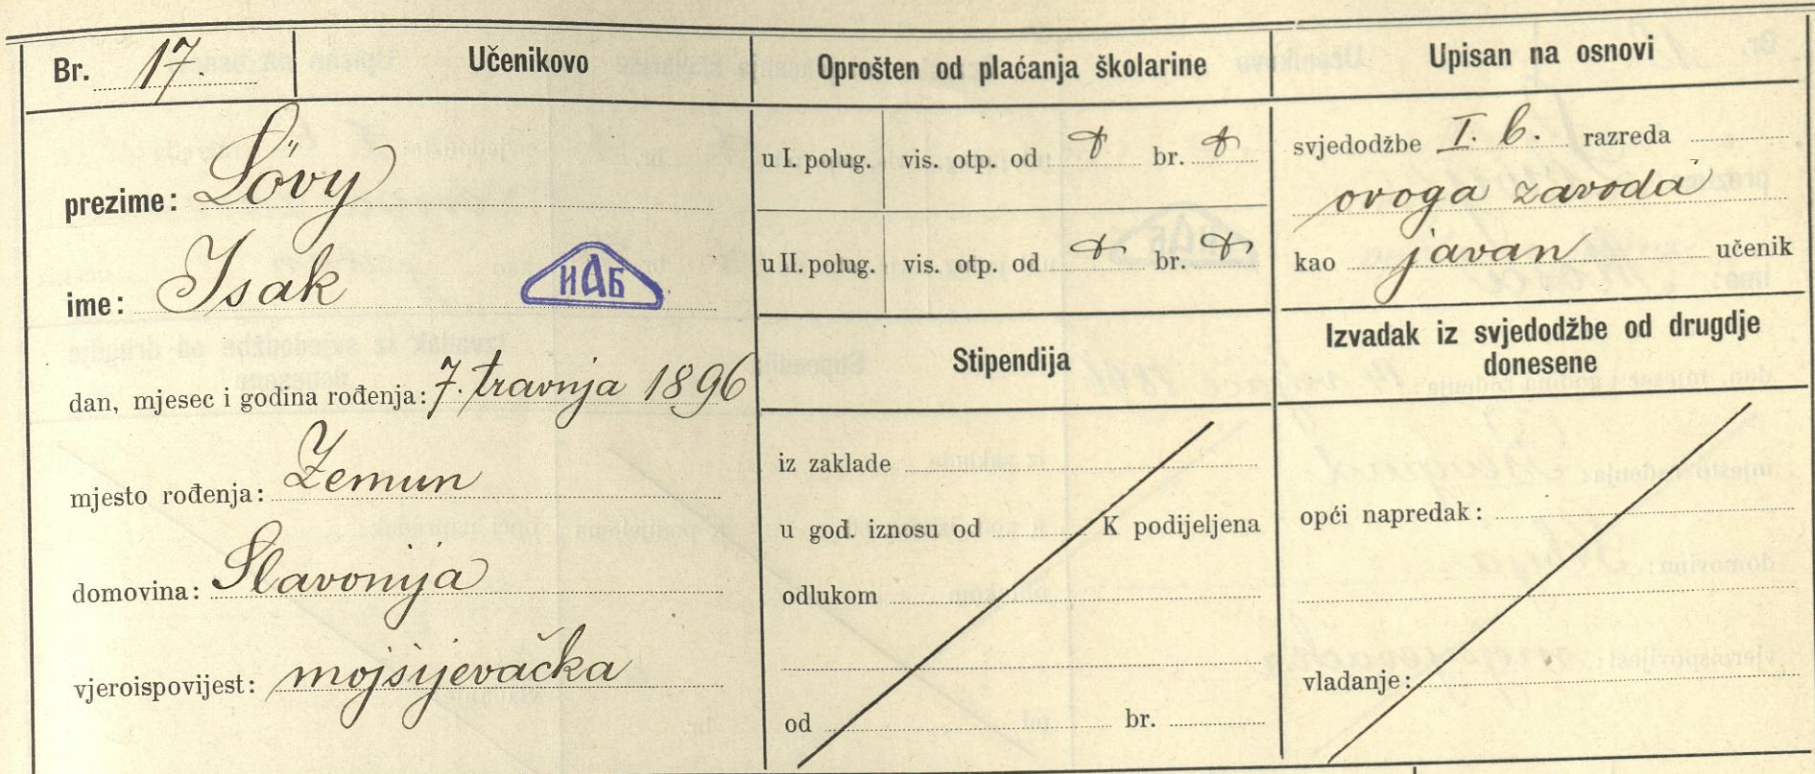 Br. 17.
Učenikovo
prezime: Lövy
ime: Isak
НАБ
dan, mjesec i godina rođenja: 7. travnja 1896
mjesto rođenja: Zemun
domovina: Slavonija
vjeroispovijest: mojsijevačka
Oprošten od plaćanja školarine
u I. polug. vis. otp. od br.
u II. polug. vis. otp. od br.
Stipendija
iz zaklade
u god. iznosu od K podijeljena
odlukom
od br.
Upisan na osnovi
svjedodžbe I. b. razreda
ovoga zavoda
kao javan učenik
Izvadak iz svjedodžbe od drugdje
donesene
opći napredak:
vladanje: